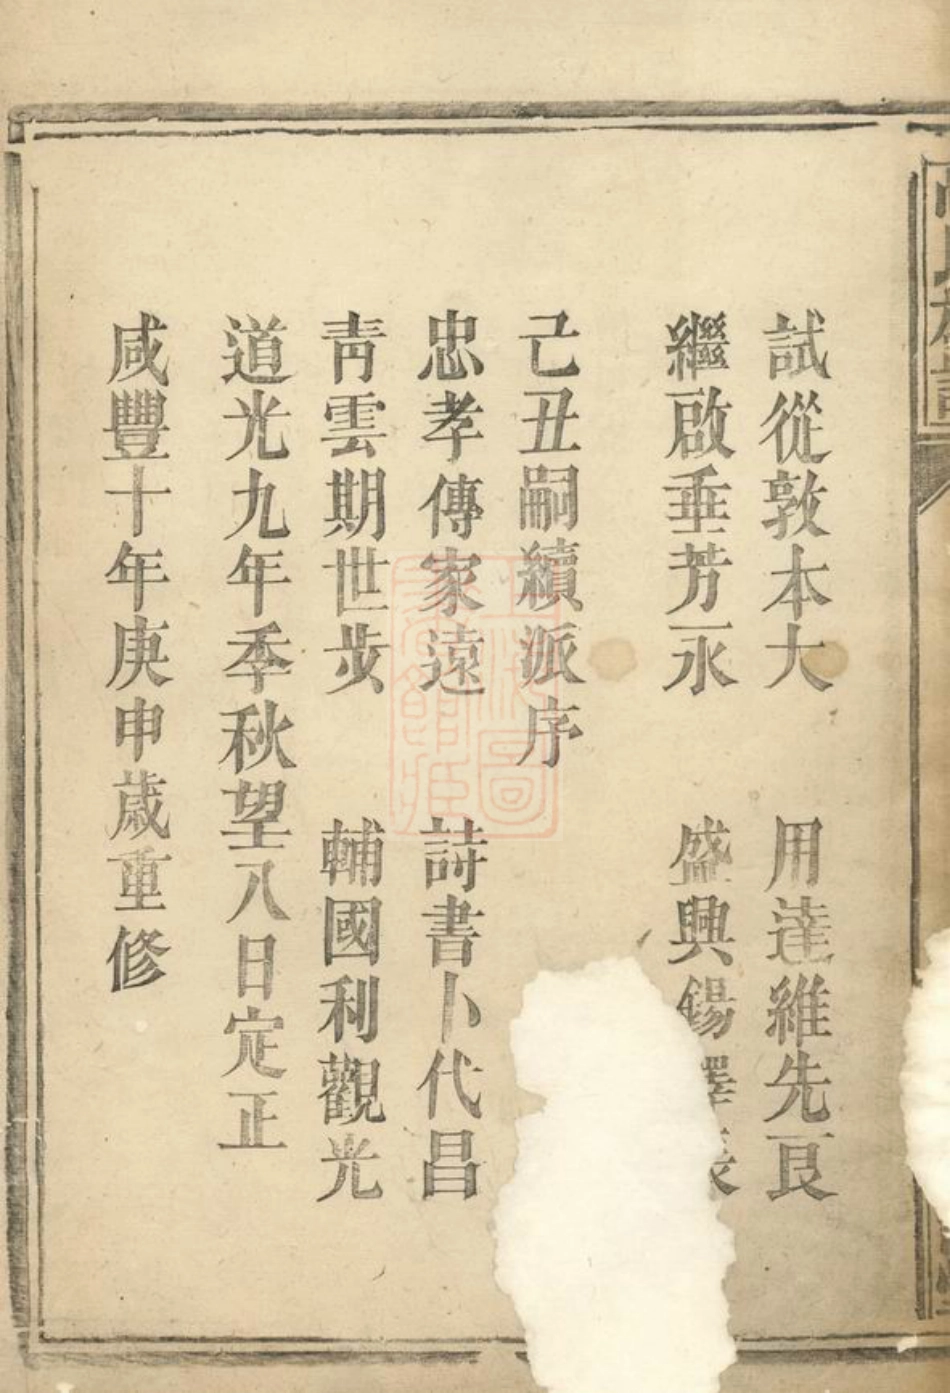 試從敦本大　用達維先良
繼啟垂芳永　盛興錫
己丑嗣續派序
忠孝傳家遠　詩書卜代昌
青雲期世步　輔國利觀光
道光九年季秋望八日定正
咸豐十年庚申歲重修